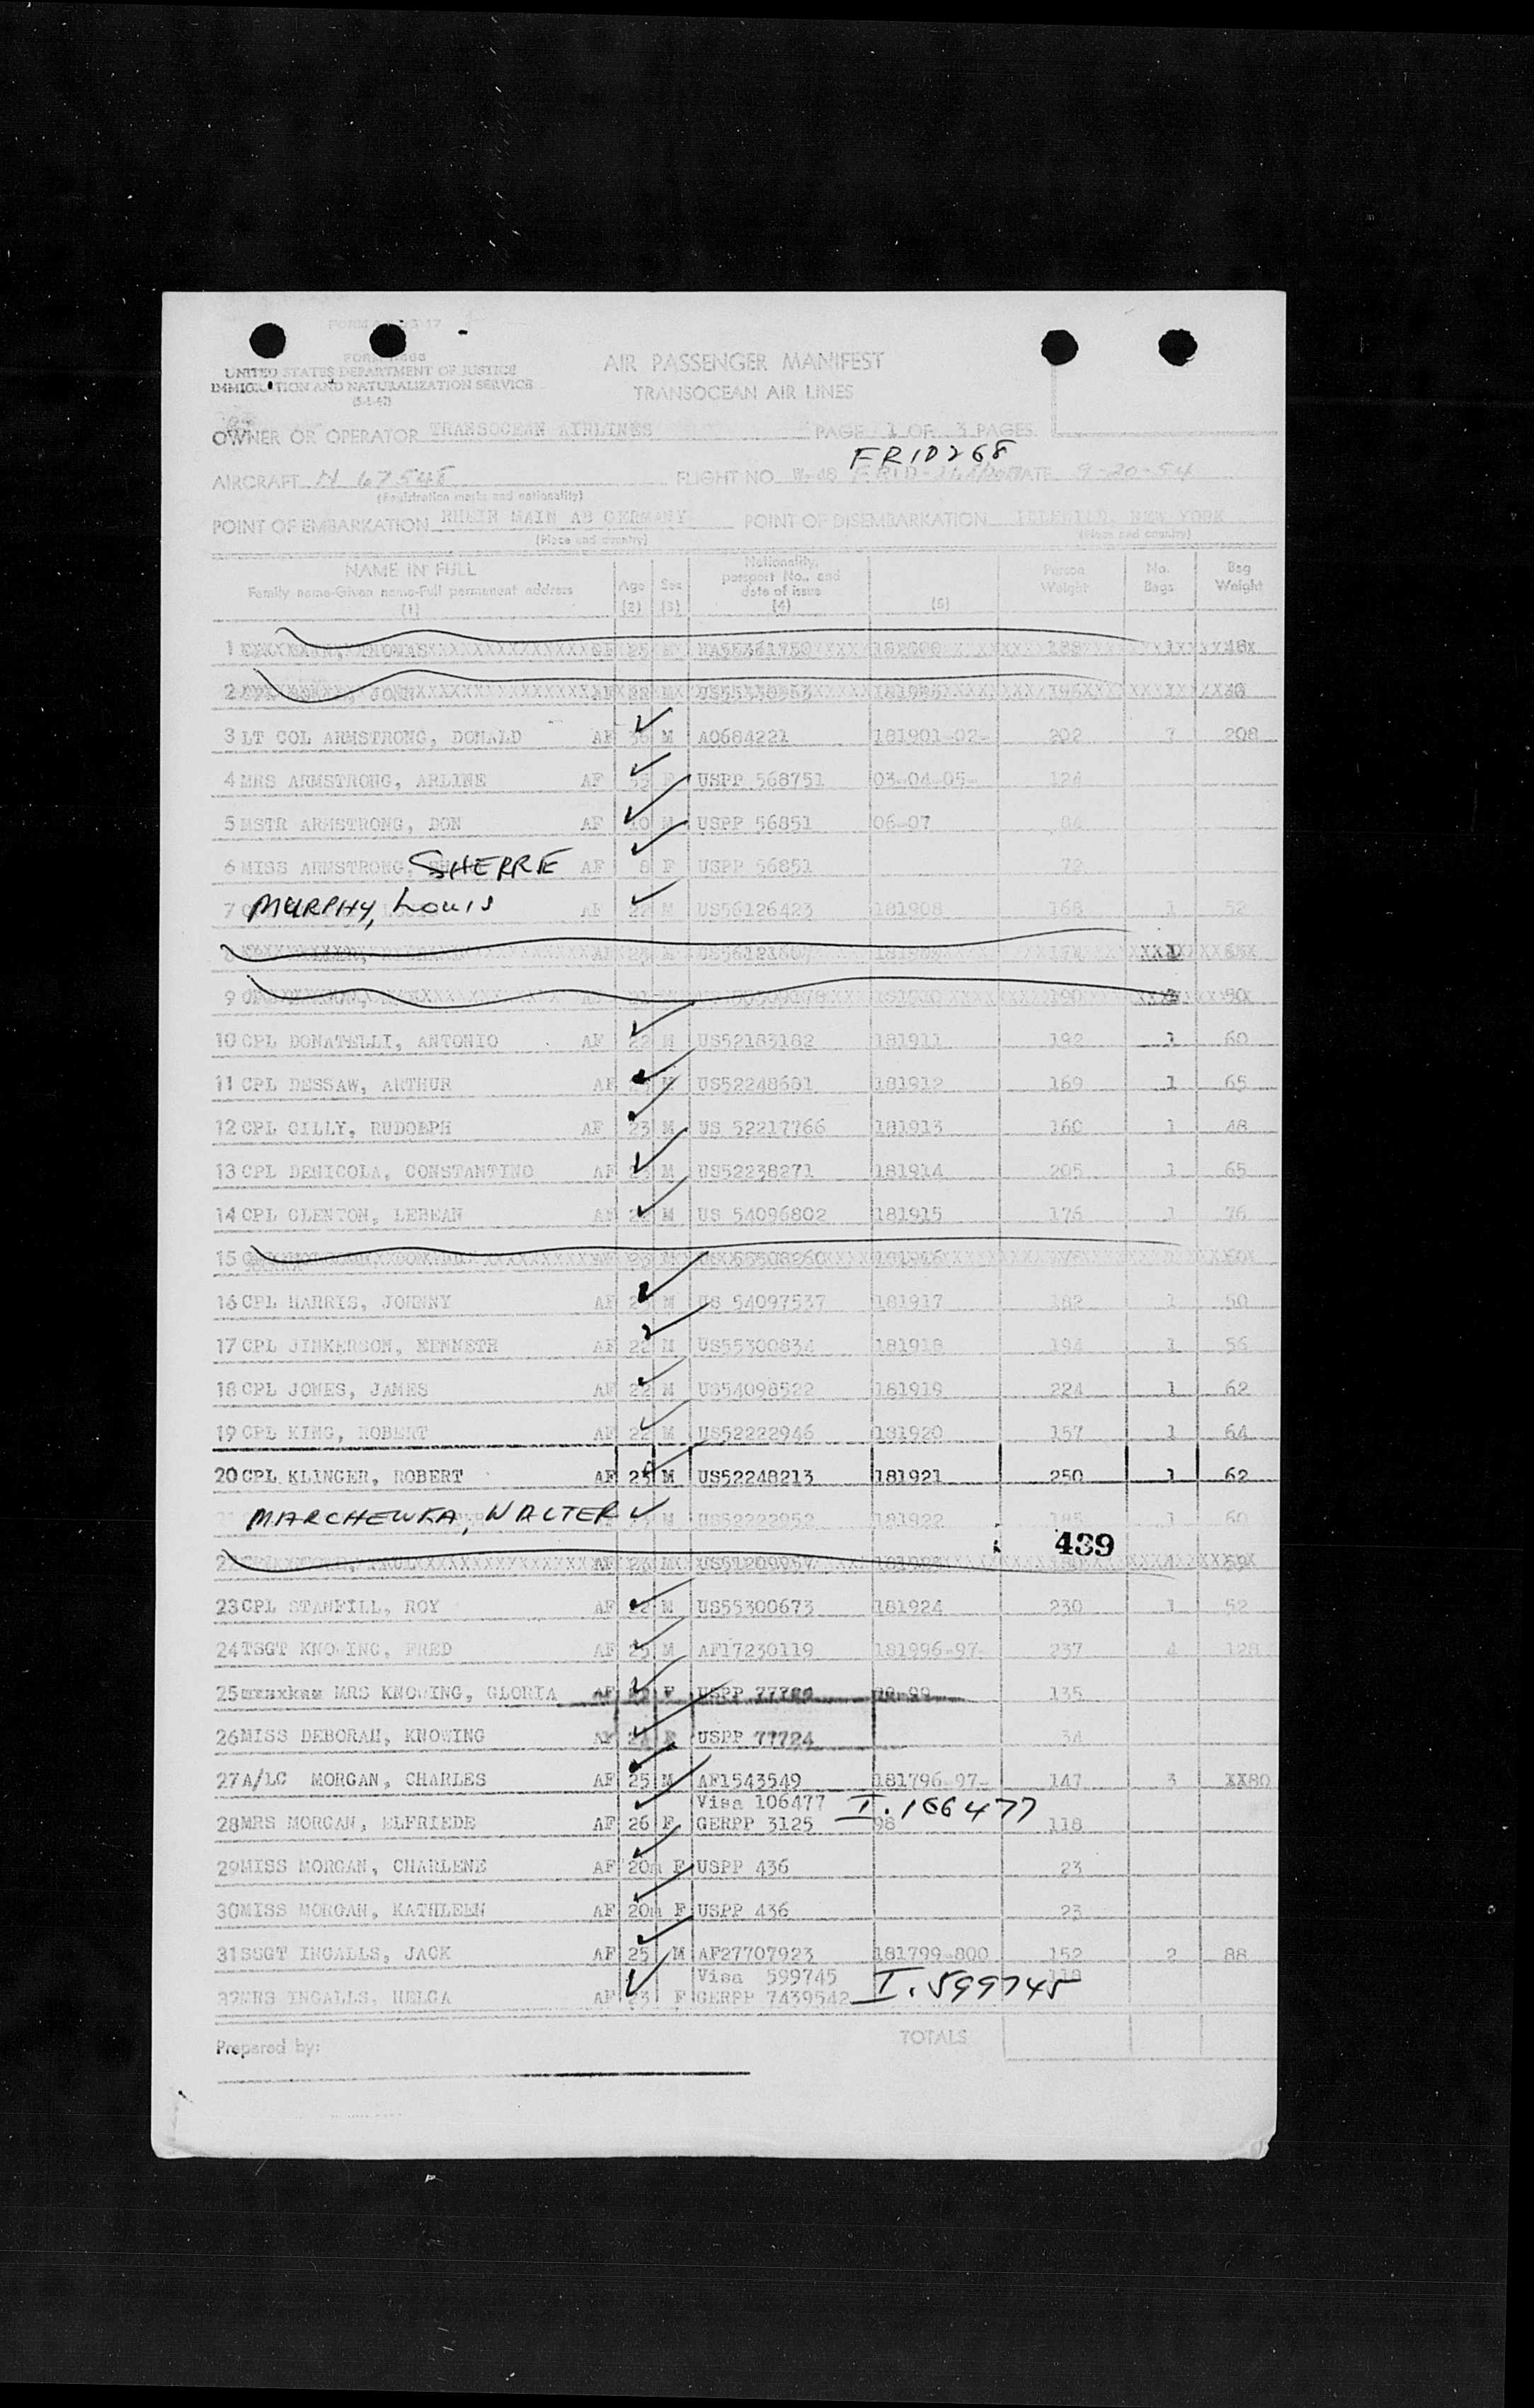 UNITED STATES DEPARTMENT OF JUSTICE
IMMIGRATION AND NATURALIZATION SERVICE
(5-1-47)
AIR PASSENGER MANIFEST
TRANSOCEAN AIR LINES
OWNER OR OPERATOR TRANSOCEAN AIRLINES PAGE 1 OF 3 PAGES
FRID268
AIRCRAFT FLIGHT NO. DATE 9-20-54
(Registration marks and nationality)
POINT OF EMBARKATION RHEIN MAIN AB GERMANY POINT OF DISEMBARKATION IDLEWILD, NEW YORK
(Place and country) (Place and country)
NAME IN FULL Age Sex Nationality, passport No., and date of issue Person Weight No. Bags Bag Weight
Family name-Given name-Full permanent address
(1) (2) (3) (4) (5)
1 THOMAS
2 JOHN
3 LT COL ARMSTRONG, DONALD AF 36 M AO684221 181901-02- 202 7 208
4 MRS ARMSTRONG, ARLINE AF 35 F USPP 568751 03-04-05- 124
5 MSTR ARMSTRONG, DON AF 10 M USPP 56851 06-07 84
6 MISS ARMSTRONG, SHERRE AF 8 F USPP 56851 72
7 MURPHY, LOUIS AF 22 M US56126423 181908 168 1 52
8
9
10 CPL DONATELLI, ANTONIO AF 22 M US52183182 181911 192 1 60
11 CPL DESSAW, ARTHUR AF M US52248681 181912 169 1 65
12 CPL GILLY, RUDOLPH AF 23 M US 52217766 181913 160 1 48
13 CPL DENICOLA, CONSTANTINO AF 23 M US52238271 181914 205 1 65
14 CPL GLENTON, LEBEAN AF 22 M US 54096802 181915 176 1 76
15
16 CPL HARRIS, JOHNNY AF 23 M US 54097537 181917 182 1 50
17 CPL JINKERSON, KENNETH AF 22 M US55300834 181918 194 1 56
18 CPL JONES, JAMES AF 22 M US54098522 181919 224 1 62
19 CPL KING, ROBERT AF 22 M US52222946 181920 157 1 64
20 CPL KLINGER, ROBERT AF 23 M US52248213 181921 250 1 62
MARCHEWKA, WALTER M US52222952 181922 185 1 60
439
23 CPL STANFILL, ROY AF 22 M US55300673 181924 230 1 52
24 TSGT KNOWING, FRED AF 25 M AF17230119 181996-97- 237 4 128
25 MRS KNOWING, GLORIA AF F USPP 77724 98-99 135
26 MISS DEBORAH, KNOWING AF F USPP 77724 34
27 A/1C MORGAN, CHARLES AF 25 M AF1543549 181796-97- 147 3 XX80
Visa 106477 I.166477
28 MRS MORGAN, ELFRIEDE AF 26 F GERPP 3125 98 118
29 MISS MORGAN, CHARLENE AF 20m F USPP 436 23
30 MISS MORGAN, KATHLEEN AF 20m F USPP 436 23
31 SSGT INGALLS, JACK AF 25 M AF27707923 181799-800 152 2 88
Visa 599745 I.599745
32 MRS INGALLS, HELGA AF 23 F GERPP 7439542
Prepared by: TOTALS